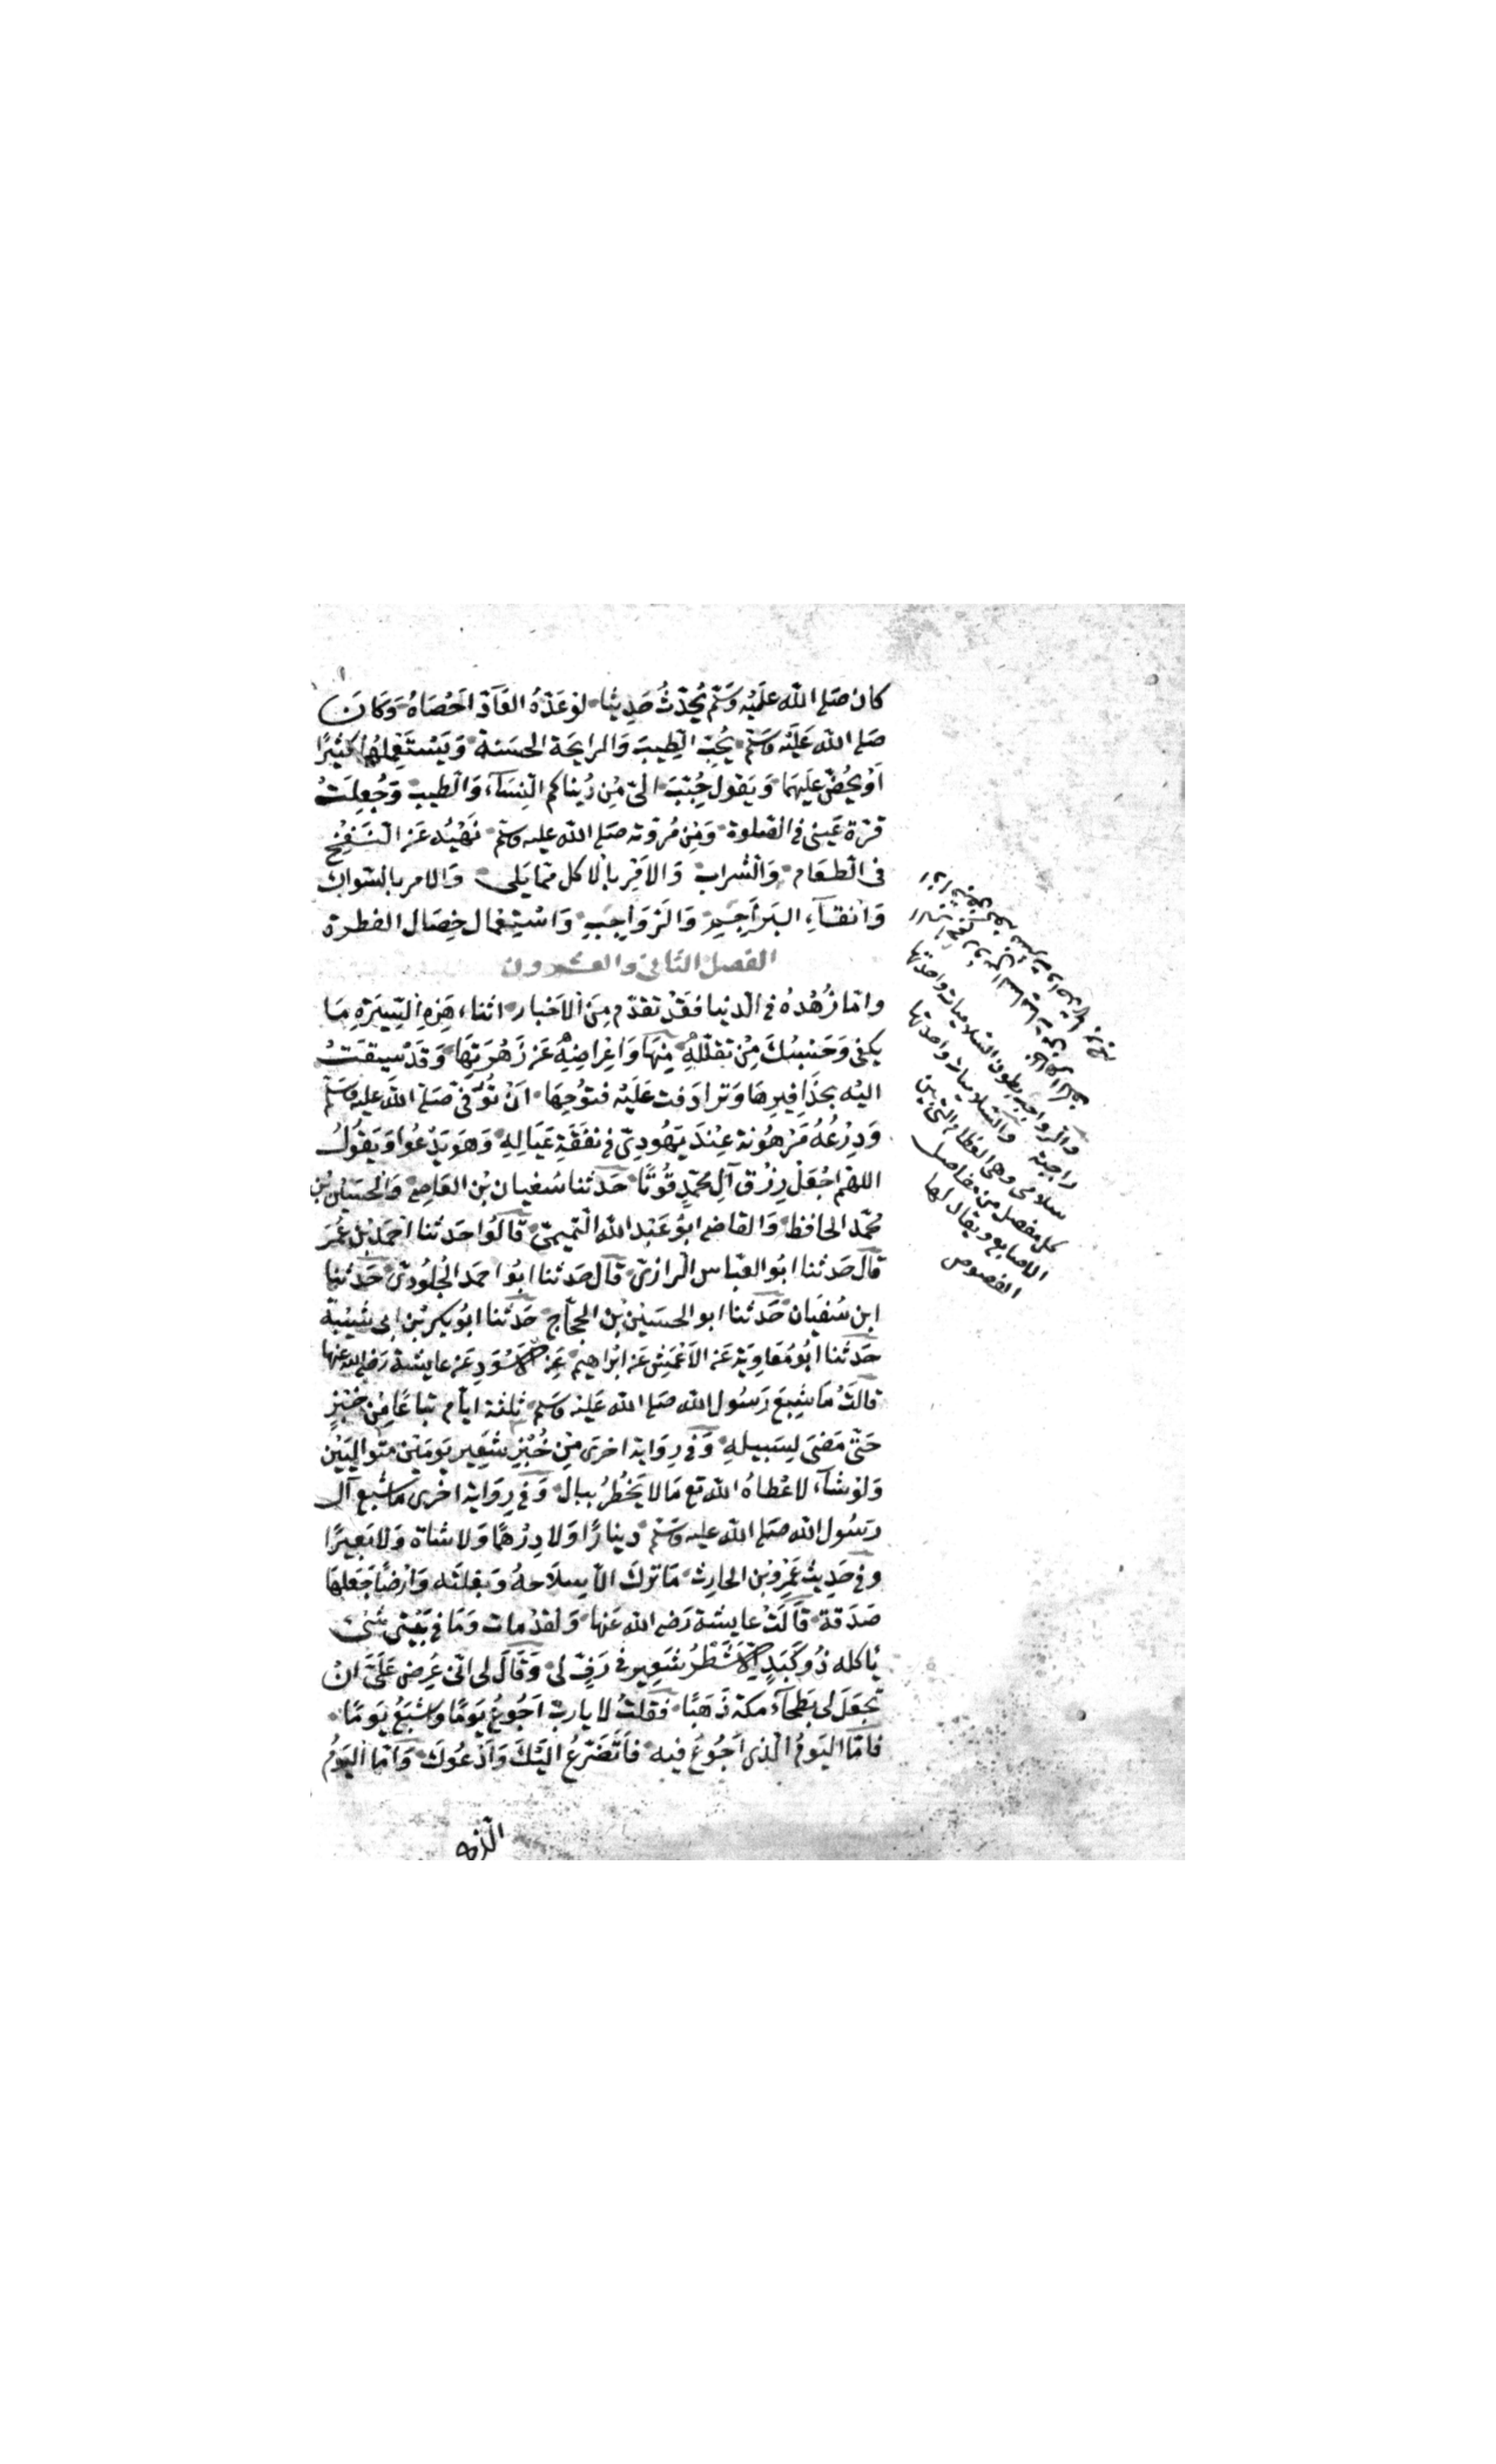 كان صَلى الله عَلَيْه وَسَلّم يُحَدّثُ حَدِيثا لوْ عَدّهُ العَآدّ اَحْصَاهُ وَكانَ
صَلى الله عَلَيْه وَسَلّم يُحِبّ الطِيبَ وَالرايحَة الحسَنة وَيَسْتَعْمِلهُا كثيْرًا
اَوْ يحُضّ عَليهَمَا وَيَقول حُبّبَ الىّ مِنْ دُنياكم النِسَآء وَالطيب وَجُعِلَتْ
قرّة عَيْنى فى الصّلوة وَمِنْ مُروّته صَلى الله عليه وسَلّم نَهْيُه عَن النَفْخ
فى الطعَام وَالشراب وَالاَمْر بالاكل ممّا يَلى وَالامر بالسّواك
وَانقآءِ البَرَاجِمِ وَالرَوَاجِبِ وَاسْتِعْمال خِصَال الفطرة
الفصل الثانى والعشرون
وامّا زُهْدهُ فى الدّنيا فقَدْ تقدّم مِنَ الاَخبار اثناء هَذِهِ السّيرَةِ مَا
يكفى وَحَسْبُكَ مِنْ تقلّلِهِ مِنهَا وَاِعْراضِهِ عَنْ زَهْرَتِهَا وَقَدْ سيقَتْ
اليْه بحذَافيرِهَا وَترادَفت عَليْه فتوُحهَا انْ تُوُفّىَ صَلى الله عليه وسَلّم
وَدِرْعُهُ مَرْهُونة عِنْدَ يَهُودِىّ فى نفقَةِ عيَالِهِ وَهوَ يَدْعُوا وَيَقُولُ
اللهمّ اجْعَلْ رِزْق آلِ مُحَمّدٍ قُوتًا حَدثنا سُفيان بْن العَاصِى وَالحسَين بْن
مُحَمّد الحافظ وَالقاضى ابُو عَبْد الله التّميمىّ قالوُا حَدثنا احمَدْ بْن عُمَر
قال حَدثنا ابُو العبّاس الرازىّ قال حَدثنا ابُو احمَد الجُلودىّ حَدثنا
ابن سُفيَان حَدثنا ابو الحسَيْن بْن الحجّاج حَدثنا ابوُ بكر بْن ابى شيْبَة
حَدثنا ابُو مُعَاويَة عَن الاَعْمَش عَن ابْرَاهيم عَن الاَسْوَدِ عَن عايشة رَضى الله عنها
قالتْ مَا شبِعَ رَسُول الله صَلى الله عَليْه وسَلم ثلثة ايّام تبَاعًا مِنْ خبْزٍ
حَتّى مَضَى لِسَبيلهِ وَفى رِوَاية اخرى مِنْ خُبْزِ شَعِير يَومَيْن متوَاليَيْن
وَلوْ شآء لاعْطاهُ الله تع مَا لا يَخْطُرُ ببال وَفى رِوَاية اخرى مَا شبع آل
رَسُول الله صَلى الله عليه وسَلّم دينارًا وَلا دِرْهمًا وَلا شاة وَلا بَعِيرًا
وفى حَديث عَمْرو بْن الحارِث مَا ترَك الّا سِلَاحهُ وَبغلتَه وَارْضًا جَعَلهَا
صَدَقة قالَتْ عايشة رَضى الله عَنها وَلقدْ مات وَمَا فى بَيْتى شئ
يَاكله ذُو كبَدٍ الّا شَطْرُ شَعِير فى رَفّ لى وَقالَ لى انّى عُرِض عَلَىّ انْ
تجعَلَ لى بَطحآءُ مكة ذَهَبًا فقلتُ لا يارب اَجُوعُ يَومًا وَاشبَعُ يَومًا
فامّا اليَومُ الّذى اَجُوعُ فيه فاَتَضَرّعُ اليْكَ وَادْعُوكَ وَامّا اليَوْمُ
الّذى
والرواجب بطون السّلاميات واحدتها
راجبة والسّلاميات واحدتها
سلامى وهى العظام التى بين
كل مفصل من مفاصل
الاصابع ويقال لها
الفصوص